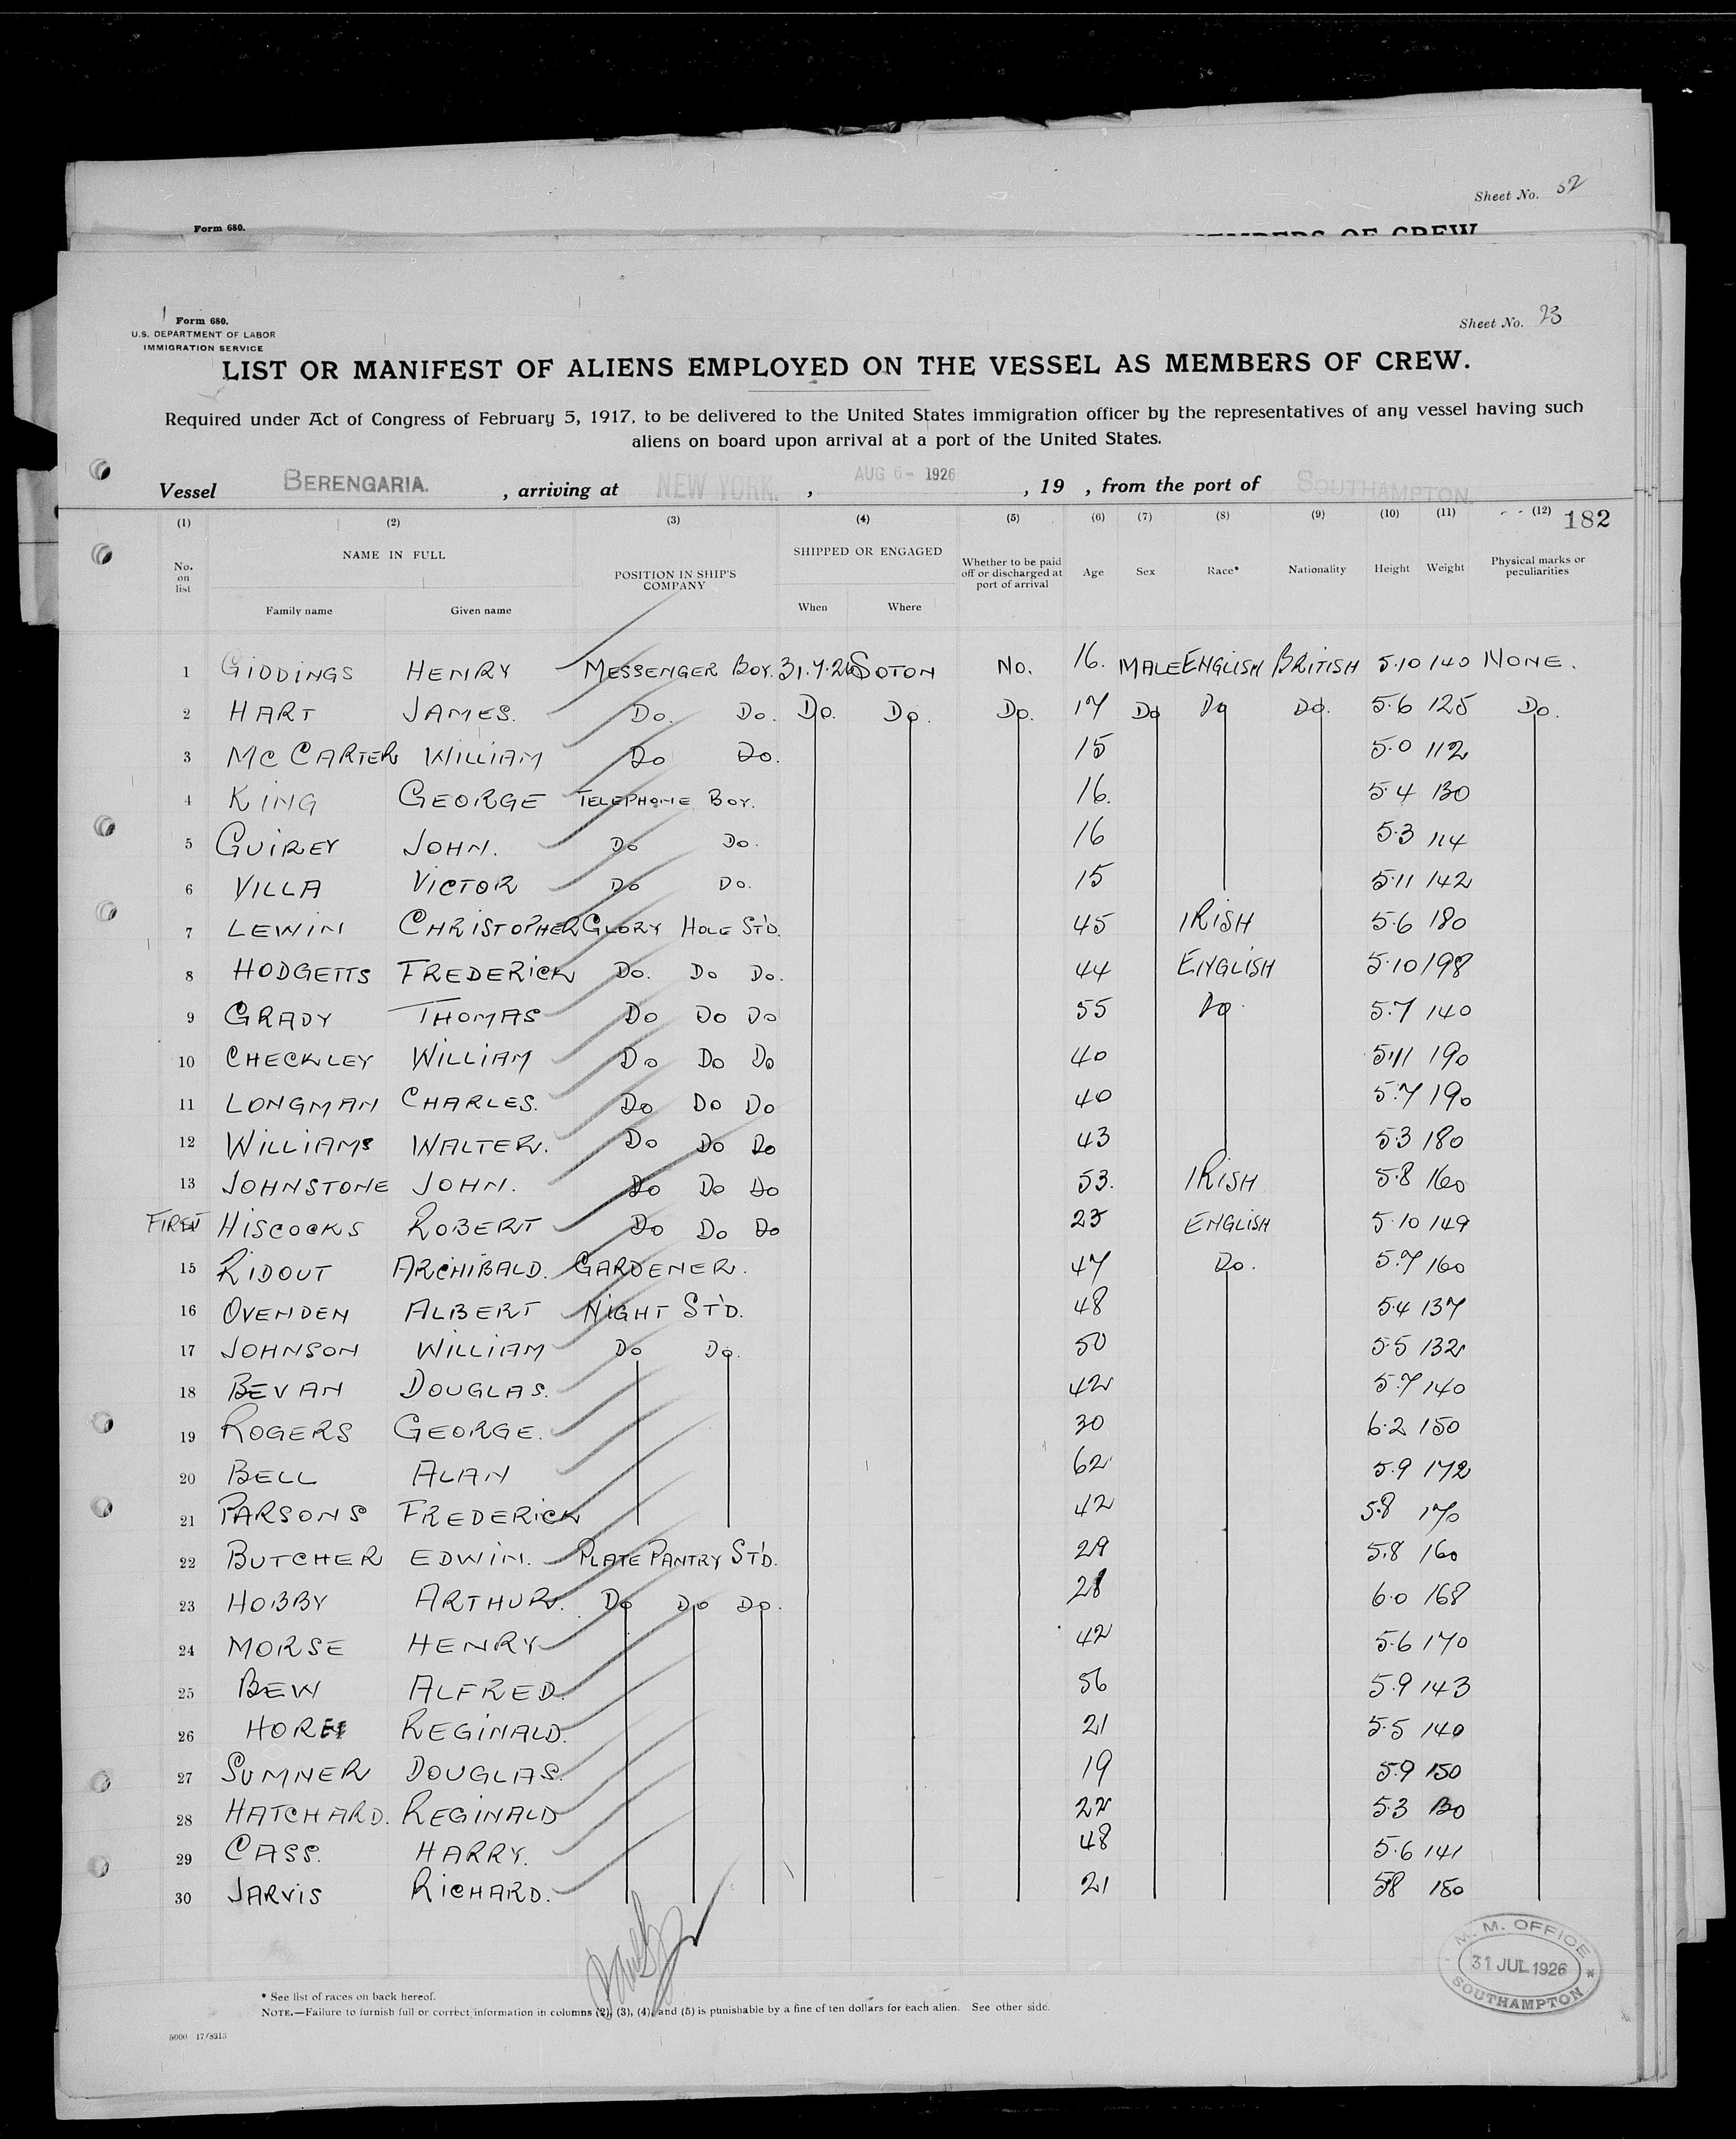 Sheet No. 52
Form 680.
MEMBERS OF CREW
Form 680.
U.S. DEPARTMENT OF LABOR
IMMIGRATION SERVICE
Sheet No. 23
LIST OR MANIFEST OF ALIENS EMPLOYED ON THE VESSEL AS MEMBERS OF CREW.
Required under Act of Congress of February 5, 1917, to be delivered to the United States immigration officer by the representatives of any vessel having such
aliens on board upon arrival at a port of the United States.
Vessel BERENGARIA. , arriving at NEW YORK. , AUG 6- 1926 , 19 , from the port of SOUTHAMPTON.
(1) (2) (3) (4) (5) (6) (7) (8) (9) (10) (11) (12) 182
No. on list NAME IN FULL Family name Given name POSITION IN SHIP'S COMPANY SHIPPED OR ENGAGED When Where Whether to be paid off or discharged at port of arrival Age Sex Race* Nationality Height Weight Physical marks or peculiarities
1 GIDDINGS HENRY MESSENGER BOY. 31.7.26 SOTON NO. 16. MALE ENGLISH BRITISH 5.10 140 NONE.
2 HART JAMES. DO. DO. DO. DO. DO. 17 DO DO DO. 5.6 125 DO.
3 MC CARTER WILLIAM DO DO. 15 5.0 112
4 KING GEORGE TELEPHONE BOY. 16. 5.4 130
5 GUIREY JOHN. DO DO. 16 5.3 114
6 VILLA VICTOR DO DO. 15 5.11 142
7 LEWIN CHRISTOPHER GLORY HOLE ST'D. 45 IRISH 5.6 180
8 HODGETTS FREDERICK DO. DO DO. 44 ENGLISH 5.10 198
9 GRADY THOMAS DO DO DO 55 DO. 5.7 140
10 CHECKLEY WILLIAM DO DO DO 40 5.11 190
11 LONGMAN CHARLES. DO DO DO 40 5.7 190
12 WILLIAMS WALTER. DO DO DO 43 5.3 180
13 JOHNSTONE JOHN. DO DO DO 53. IRISH 5.8 160
HISCOCKS ROBERT DO DO DO 23 ENGLISH 5.10 149
15 RIDOUT ARCHIBALD. GARDENER. 47 DO. 5.7 160
16 OVENDEN ALBERT NIGHT ST'D. 48 5.4 137
17 JOHNSON WILLIAM DO DO. 50 5.5 132
18 BEVAN DOUGLAS. 42 5.7 140
19 ROGERS GEORGE. 30 6.2 150
20 BELL ALAN 62 5.9 172
21 PARSONS FREDERICK 42 5.8 170
22 BUTCHER EDWIN. PLATE PANTRY ST'D. 29 5.8 160
23 HOBBY ARTHUR. DO DO DO. 28 6.0 168
24 MORSE HENRY 42 5.6 170
25 BEW ALFRED. 56 5.9 143
26 HORN REGINALD. 21 5.5 140
27 SUMNER DOUGLAS. 19 5.9 150
28 HATCHARD. REGINALD 22 5.3 130
29 CASS. HARRY. 48 5.6 141
30 JARVIS RICHARD. 21 5.8 150
M. M. OFFICE
31 JUL 1926
SOUTHAMPTON
* See list of races on back hereof.
NOTE.—Failure to furnish full or correct information in columns (2), (3), (4), and (5) is punishable by a fine of ten dollars for each alien. See other side.
5000 17/8313